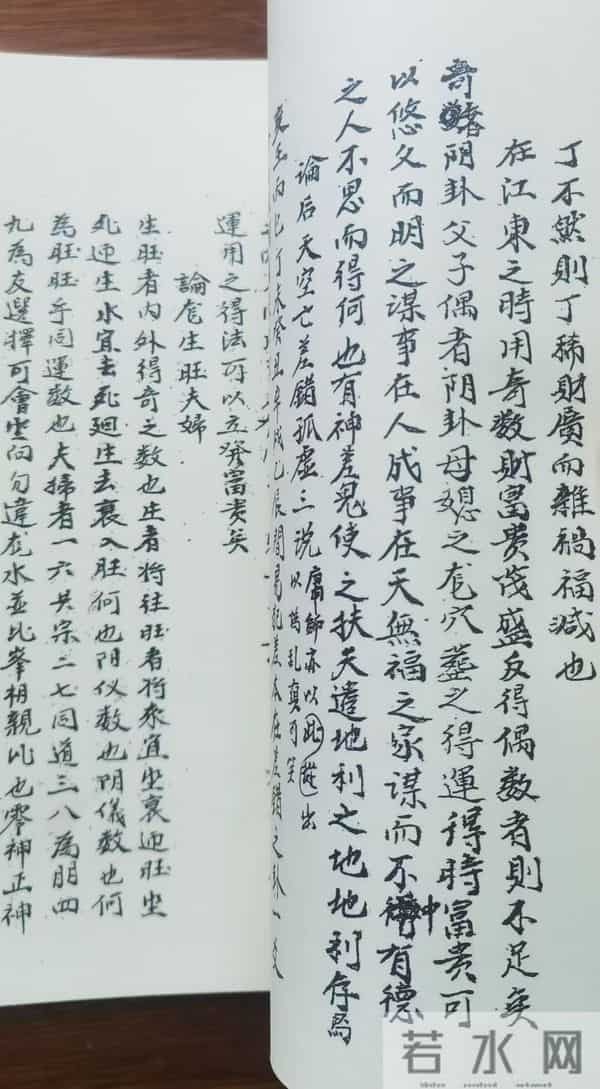 丁不然則丁稀財廣而雜禍福減也
在江東之時用奇數財富貴茂盛反得偶數者則不足矣
奇阴卦父子偶者阴卦母媳之龙穴葬之得運得時富貴可
以悠久而明之谋事在人成事在天無福之家谋而不中有德
之人不思而得何也有神差鬼使之扶天遣地利之地地利存焉
論后天空亡差錯孤虛三说庸師亦以此造出
以為乱真可笑
運用之得法可以立發富贵矣
論龙生旺夫婦
生旺者内外得奇之数也生者将往旺者将來宜坐衰迎旺坐
死迎生水宜去死廻生去衰入旺何也阴仪数也阴儀数也何
為旺旺乎同運数也夫掃者一六共宗二七同道三八為朋四
九為友選擇可會坐向勿違龙水並比峯相親比也零神正神
若水网